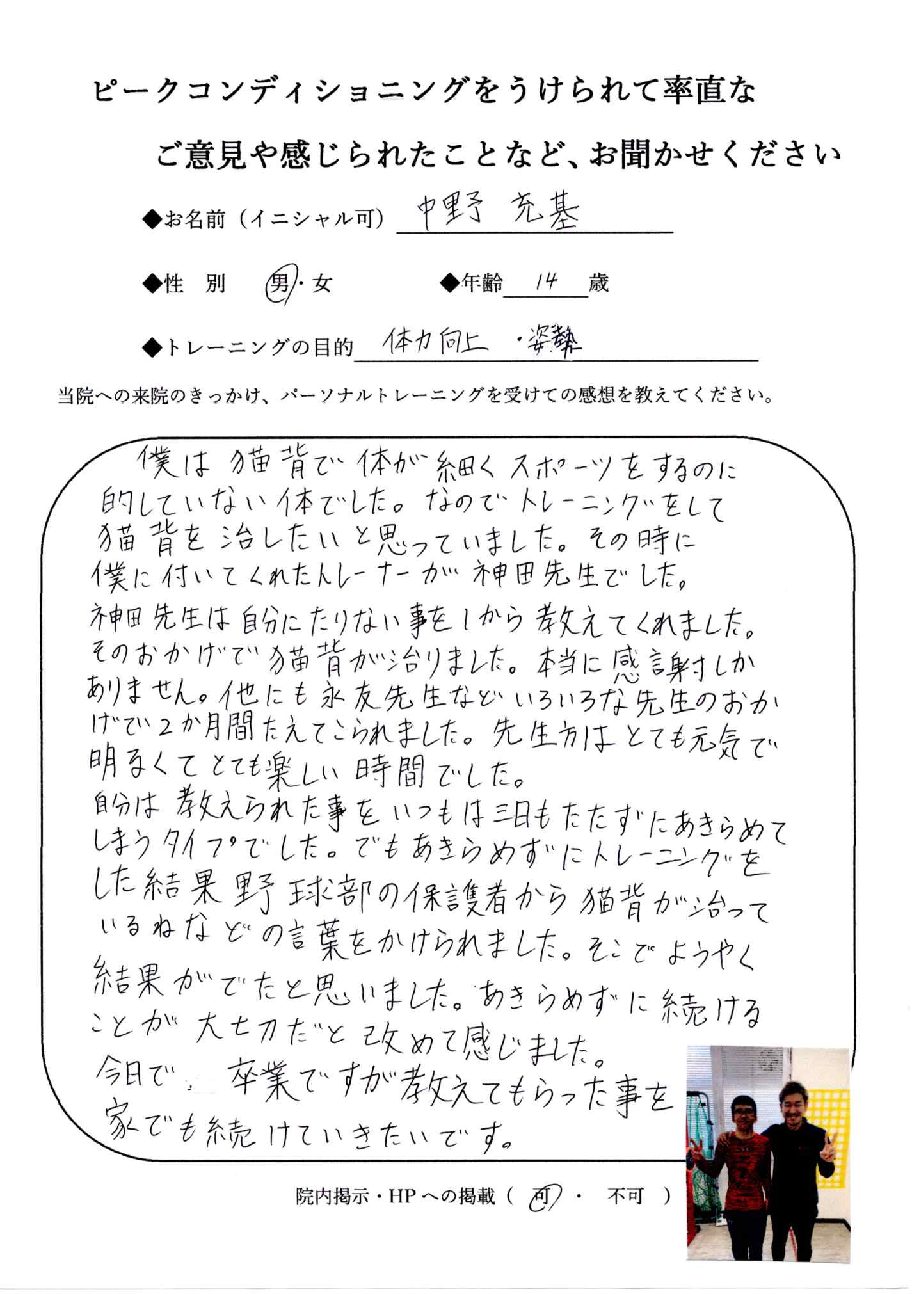 ピークコンディショニングをうけられて率直な
ご意見や感じられたことなど、お聞かせください
◆お名前（イニシャル可） 中野 充基
◆性 別 男・女 ◆年齢 14 歳
◆トレーニングの目的 体力向上 ・姿勢
当院への来院のきっかけ、パーソナルトレーニングを受けての感想を教えてください。
僕は猫背で体が細くスポーツをするのに
的していない体でした。なのでトレーニングをして
猫背を治したいと思っていました。その時に
僕に付いてくれたトレーナーが神田先生でした。
神田先生は自分にたりない事を1から教えてくれました。
そのおかげで猫背が治りました。本当に感謝しか
ありません。他にも永友先生などいろいろな先生のおか
げで2か月間たえてこられました。先生方はとても元気で
明るくてとても楽しい時間でした。
自分は教えられた事をいつもは三日もたたずにあきらめて
しまうタイプでした。でもあきらめずにトレーニングを
した結果野球部の保護者から猫背が治って
いるねなどの言葉をかけられました。そこでようやく
結果がでたと思いました。あきらめずに続ける
ことが大切だと改めて感じました。
今日で、卒業ですが教えてもらった事を
家でも続けていきたいです。
院内掲示・HPへの掲載（ 可 ・ 不可 ）